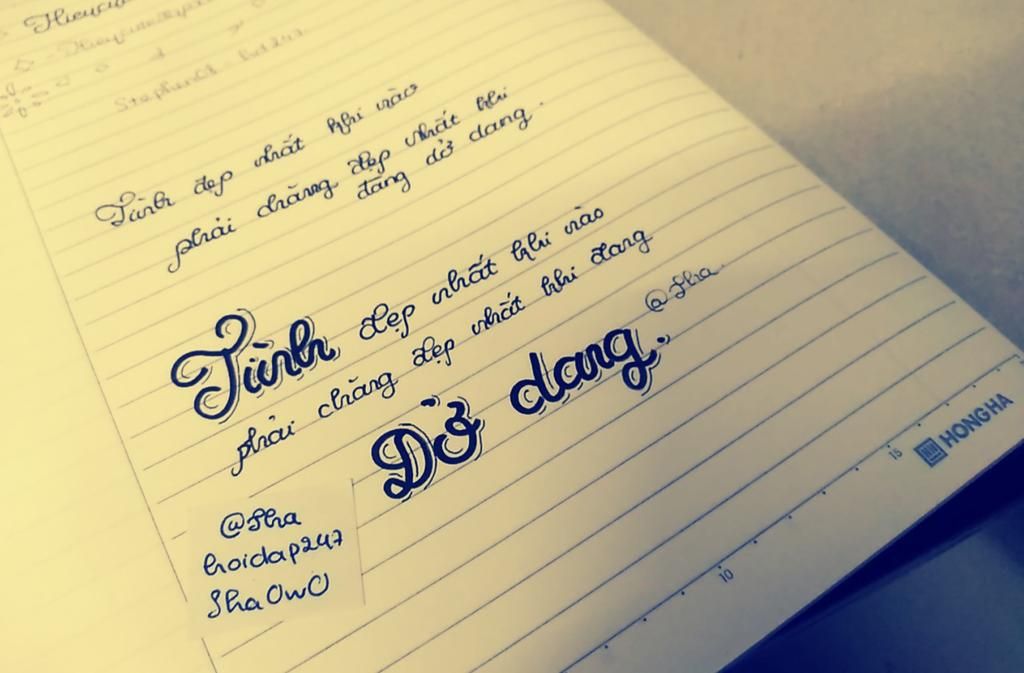 Tình đẹp nhất khi nào
phải chăng đẹp nhất khi
đang dở dang.
Tình đẹp nhất khi nào
phải chăng đẹp nhất khi đang
Dở dang.
@Sha
@Sha
hoidap247
ShaOwO
10
15
HONG HA